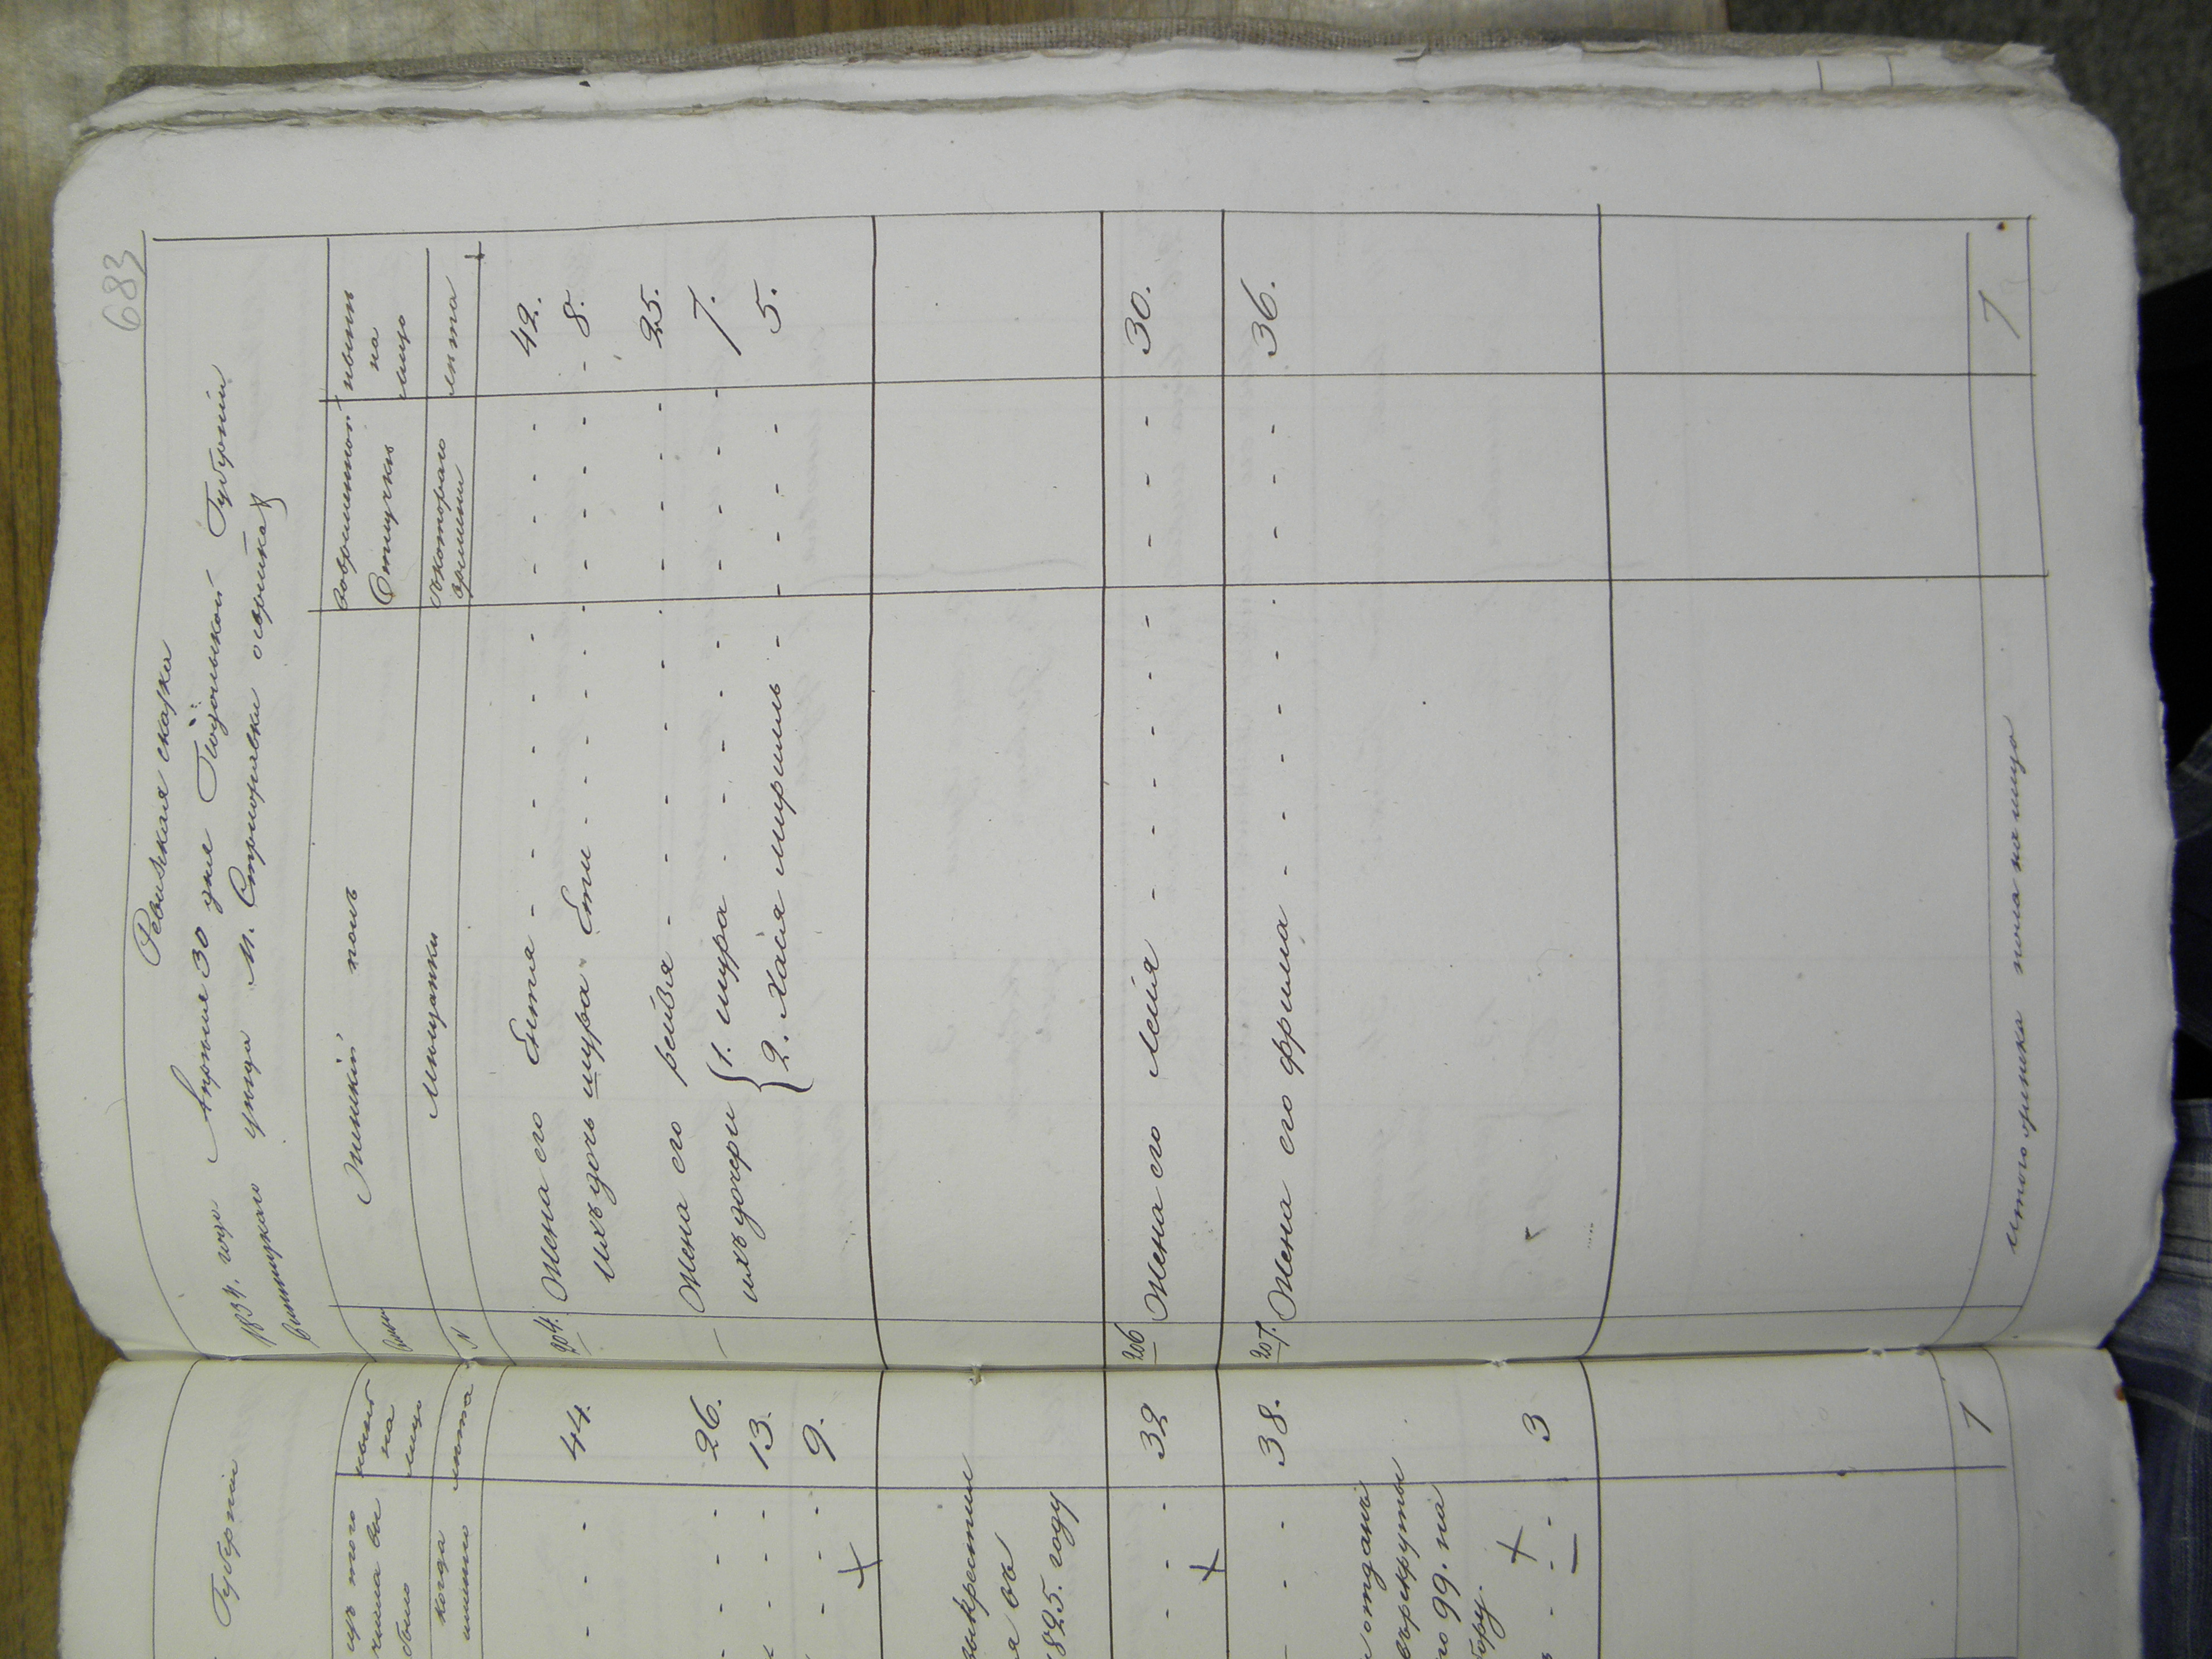 683
Ревизская сказка
1834. года Апреля 30 дня Подольской Губернiи
Винницкаго уѣзда М. Стрижавки о евреяхъ
Женскiй полъ
Во временной Отлучкѣ
нынѣ на лицо
N
Мещанки
съ котораго времени
лѣта
204. Жена его Ентя - - - - 42.
Ихъ дочь шура Ети - - - - 8.
Жена его рейвя - - - - 25.
ихъ дочери 1. шура - - - - 7.
2. Хаiя мириль - - - - 5.
206 Жена его Лейя - - - - 30.
207. Жена его фрима - - - - 36.
Итого женска пола на лицо 7
Губернiи
изъ того числа вы было
нынѣ на лицо
когда имянно
лѣта
- - - 44.
- - - 26.
- - - 13.
- - - 9.
1825. году
- - - 32
- - - 38.
отданъ
въ рекруты
по 99. на
бору.
- - - 3
7